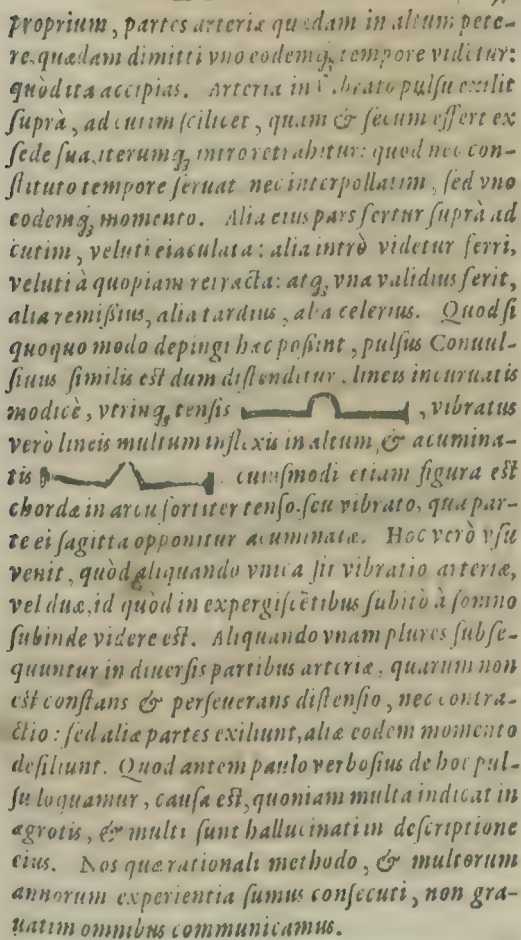 proprium, partes arteriæ quædam in altum pete-
re, quædam dimitti vno eodemq́; tempore videtur:
quòd ita accipias. Arteria in Vibrato pulsu exilit
suprà, ad cutim scilicet, quam & secum effert ex
sede sua, iterumq́; intro retrahitur: quod nec con-
stituto tempore seruat nec interpollatim, sed vno
eodemq́; momento. Alia eius pars fertur suprà ad
cutim, veluti eiaculata: alia intrò videtur ferri,
veluti à quopiam retracta: atq́; vna validius ferit,
alia remißius, alia tardius, alia celerius. Quod si
quoquo modo depingi hæc poßint, pulsus Conuul-
siuus similis est dum distenditur, lineis incuruatis
modicè, vtrinq́; tensis , vibratus
verò lineis multum inflexis in altum, & acumina-
tis . cuiusmodi etiam figura est
chordæ in arcu fortiter tenso, seu vibrato, qua par-
te ei sagitta opponitur acuminatæ. Hoc verò vsu
venit, quòd aliquando vnica sit vibratio arteriæ,
vel duæ, id quòd in expergiscētibus subitò à somno
subinde videre est. Aliquando vnam plures subse-
quuntur in diuersis partibus arteriæ, quarum non
est constans & perseuerans distensio, nec contra-
ctio: sed aliæ partes exiliunt, aliæ eodem momento
desiliunt. Quod autem paulo verbosius de hoc pul-
su loquamur, causa est, quoniam multa indicat in
ægrotis, & multi sunt hallucinati in descriptione
eius. Nos quæ rationali methodo, & multorum
annorum experientia sumus consecuti, non gra-
uatim omnibus communicamus.